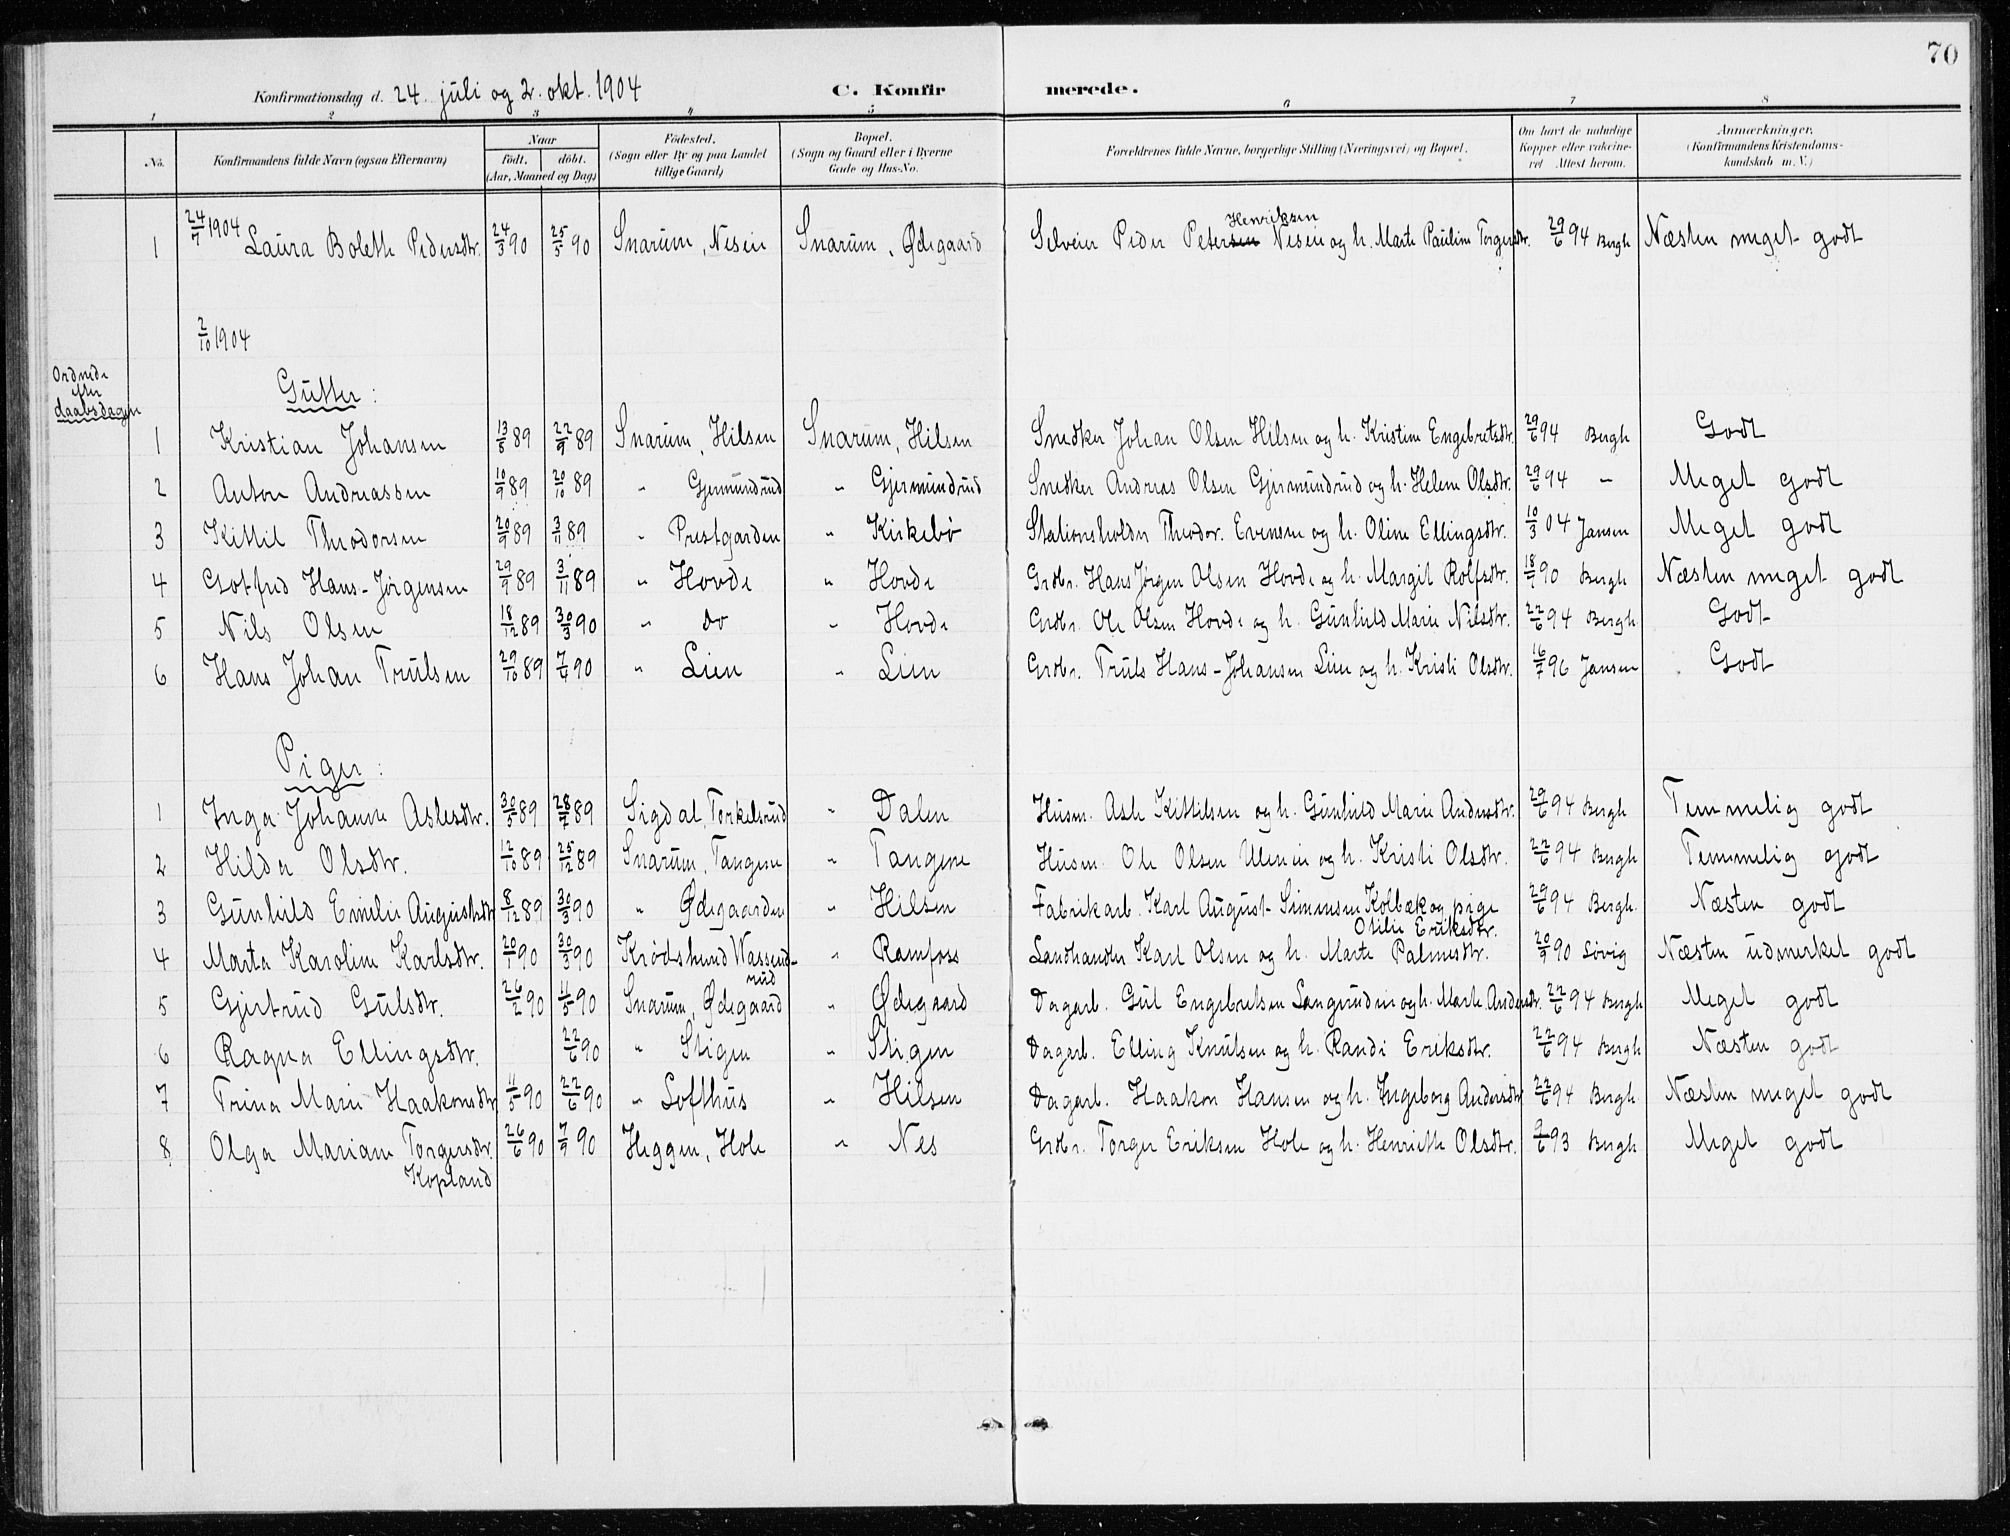 70
Konfirmationsdag d. 24. juli og 2. okt. 1904 C. Konfirmerede.
1 2 3 4 5 6 7 8
No. Konfirmandens fulde Navn (ogsaa Efternavn) Naar født. døbt. (Aar, Maaned og Dag) Fødested. (Sogn eller By og paa Landet tillige Gaard) Bopæl. (Sogn og Gaard eller i Byerne Gade og Hus-No. Forældrenes fulde Navne, borgerlige Stilling (Næringsvei) og Bopæl. Om havt de naturlige Kopper eller vakcineret Attest herom. Anmærkninger, (Konfirmandens Kristendomskundskab m. V.)
24/7 1904
1 Laura Boleth Pedersdtr. 24/3 90 25/5 90 Snarum, Nesen Snarum, Ødegaard Selveier Peder Petersen Henriksen Nesen og h. Marte Pauline Torgersdtr. 29/6 94 Bergh Næsten meget godt
2/10 1904
Ordnede efter daabsdagen
Gutter:
1 Kristian Johansen 13/8 89 22/9 89 Snarum, Hilsen Snarum, Hilsen Snedker Johan Olsen Hilsen og h. Kristine Engebretsdtr. 29/6 94 Bergh Godt
2 Anton Andreassen 10/9 89 20/10 89 " Gjermundrud " Gjermundrud Snedker Andreas Olsen Gjermundrud og h. Helene Olsdtr. 29/6 94 - Meget godt
3 Kittil Theodorsen 20/9 89 3/11 89 " Prestgarden " Kirkebø Stationsholder Theodor Evensen og h. Oline Ellingsdtr. 10/3 04 Jansen Meget godt
4 Gotfred Hans-Jørgensen 29/9 89 3/11 89 " Hovde " Hovde Grdbr. Hans Jørgen Olsen Hovde og h. Margit Rolfsdtr. 18/9 90 Bergh Næsten meget godt
5 Nils Olsen 18/12 89 30/3 90 " do " Hovde Grdbr. Ole Olsen Hovde og h. Gunhild Marie Nilsdtr. 22/6 94 Bergh Godt
6 Hans Johan Trulsen 29/10 89 7/4 90 " Lien " Lien Grdbr. Truls Hans-Johansen Lien og h. Kristi Olsdtr. 16/7 96 Jansen Godt
Piger:
1 Inga Johanne Aslesdtr. 30/5 89 28/7 89 Sigdal, Torkelsrud " Dalen Husm. Asle Kittilsen og h. Gunhild Marie Andersdtr. 29/6 94 Bergh Temmelig godt
2 Hilda Olsdtr. 12/10 89 25/12 89 Snarum, Tangene " Tangene Husm. Ole Olsen Ulenn og h. Kristi Olsdtr. 22/6 94 Bergh Temmelig godt
3 Gunhild Emilie Augustsdtr 8/12 89 30/3 90 " Ødegaarden " Hilsen Fabrikarb. Karl August Simensen Kolbæk og pige Otilie Eriksdtr. 29/6 94 Bergh Næsten godt
4 Marta Karoline Karlsdtr. 20/1 90 30/3 90 Krødsherred Wassendrud " Ramfoss Landhandler Karl Olsen og h. Marte Palmesdtr. 20/9 90 Søvig Næsten udmerket godt
5 Gjertrud Gulsdtr. 26/2 90 11/5 90 Snarum, Ødegaard " Ødegaard Dagarb. Gul Engebretsen Langrudeie og h. Marte Andersdtr. 22/6 94 Bergh Meget godt
6 Ragna Ellingsdtr. 22/6 90 " Stigen " Stigen Dagarb. Elling Knutsen og h. Randi Eriksdtr. 22/6 94 Bergh Næsten godt
7 Trina Marie Haakonsdtr 11/5 90 22/6 90 " Lofthus " Hilsen Dagarb. Haakon Hansen og h. Ingeborg Andersdtr 22/6 94 Bergh Næsten meget godt
8 Olga Mariane Torgersdtr. Kopland 26/6 90 7/9 90 Heggen, Hole " Nes Grdbr. Torger Eriksen Hole og h. Henriette Olsdtr. 9/6 93 Bergh Meget godt